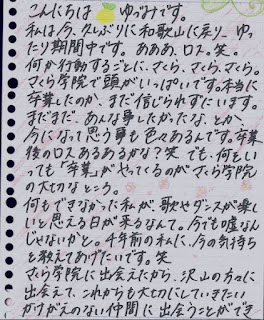 こんにちは ゆづみです。
私は今、久しぶりに和歌山に戻り、ゆっ
たり期間中です。あああ、ロス。笑
何か行動するごとに、さくら、さくら、さくら。
さくら学院で頭がいっぱいです。本当に
卒業したのか、まだ信じられずにいます。
まだまだ、あんな事したかったな、とか、
今になって思う事も色々あるんです。卒業
後のロスあるあるかな？笑 でも、何とい
っても「卒業」がやってくるのがさくら学院
の大切なところ。
何もできなかった私が、歌やダンスが楽
しいと思える日が来るなんて。今でも嘘なん
じゃないかと。千年前の私に、今の気持ち
を教えてあげたいです。笑
さくら学院に出会えたから、沢山の方々に
出会えて、これからも大切にしていきたい
かけがえのない仲間に出会うことができ